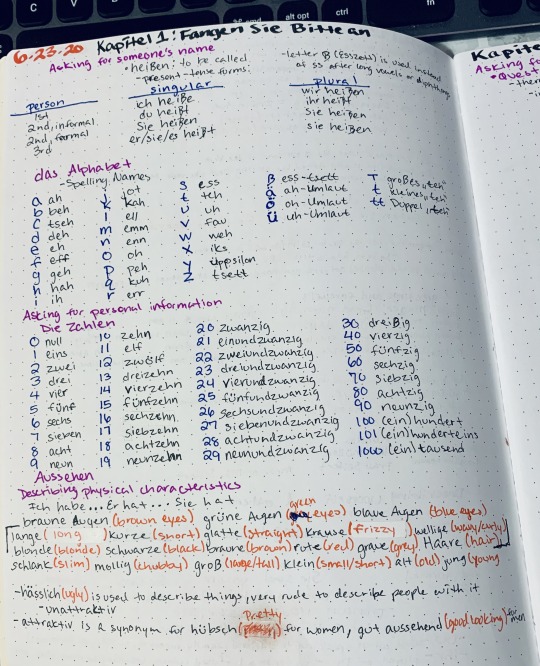 C
V
alt opt
cmd
ctrl
fn
6-23-20 Kapitel 1: Fangen Sie Bitte an
Asking for someone's name
-heißen: to be called
-present-tense forms:
-letter ß (Esszett) is used instead of ss after long vowels or dipthongs
person singular plural
1st ich heiße wir heißen
2nd, informal du heißt ihr heißt
2nd, formal Sie heißen Sie heißen
3rd er/sie/es heißt sie heißen
das Alphabet
-Spelling Names
a ah
b beh
c tseh
d deh
e eh
f eff
g geh
h hah
i ih
j jot
k kah
l ell
m emm
n enn
o oh
p peh
q kuh
r err
s ess
t teh
u uh
v fau
w weh
x iks
y üppsilon
z tsett
ß ess-tsett
ä ah-Umlaut
ö oh-Umlaut
ü uh-Umlaut
T großes „teh"
t kleines „teh"
tt Doppel „teh"
Asking for personal information
Die Zahlen
0 null
1 eins
2 zwei
3 drei
4 vier
5 fünf
6 sechs
7 sieben
8 acht
9 neun
10 zehn
11 elf
12 zwölf
13 dreizehn
14 vierzehn
15 fünfzehn
16 sechzehn
17 siebzehn
18 achtzehn
19 neunzehn
20 zwanzig
21 einundzwanzig
22 zweiundzwanzig
23 dreiundzwanzig
24 vierundzwanzig
25 fünfundzwanzig
26 sechsundzwanzig
27 siebenundzwanzig
28 achtundzwanzig
29 neunundzwanzig
30 dreißig
40 vierzig
50 fünfzig
60 sechzig
70 siebzig
80 achtzig
90 neunzig
100 (ein)hundert
101 (ein)hunderteins
1000 (ein)tausend
Aussehen
Describing physical characteristics
Ich habe... Er hat... Sie hat
braune Augen (brown eyes) grüne Augen (green eyes) blaue Augen (blue eyes)
lange (long) kurze (short) glatte (straight) krause (frizzy) wellige (wavy/curly)
blonde (blonde) schwarze (black) braune (brown) rote (red) graue (grey) Haare (hair)
schlank (slim) mollig (chubby) groß (large/tall) klein (small/short) alt (old) jung (young
-hässlich (ugly) is used to describe things, very rude to describe people with it
-unattraktiv
-attraktiv is a synonym for hübsch (Pretty) for women, gut aussehend (good looking) for men
Kapite
Asking fo